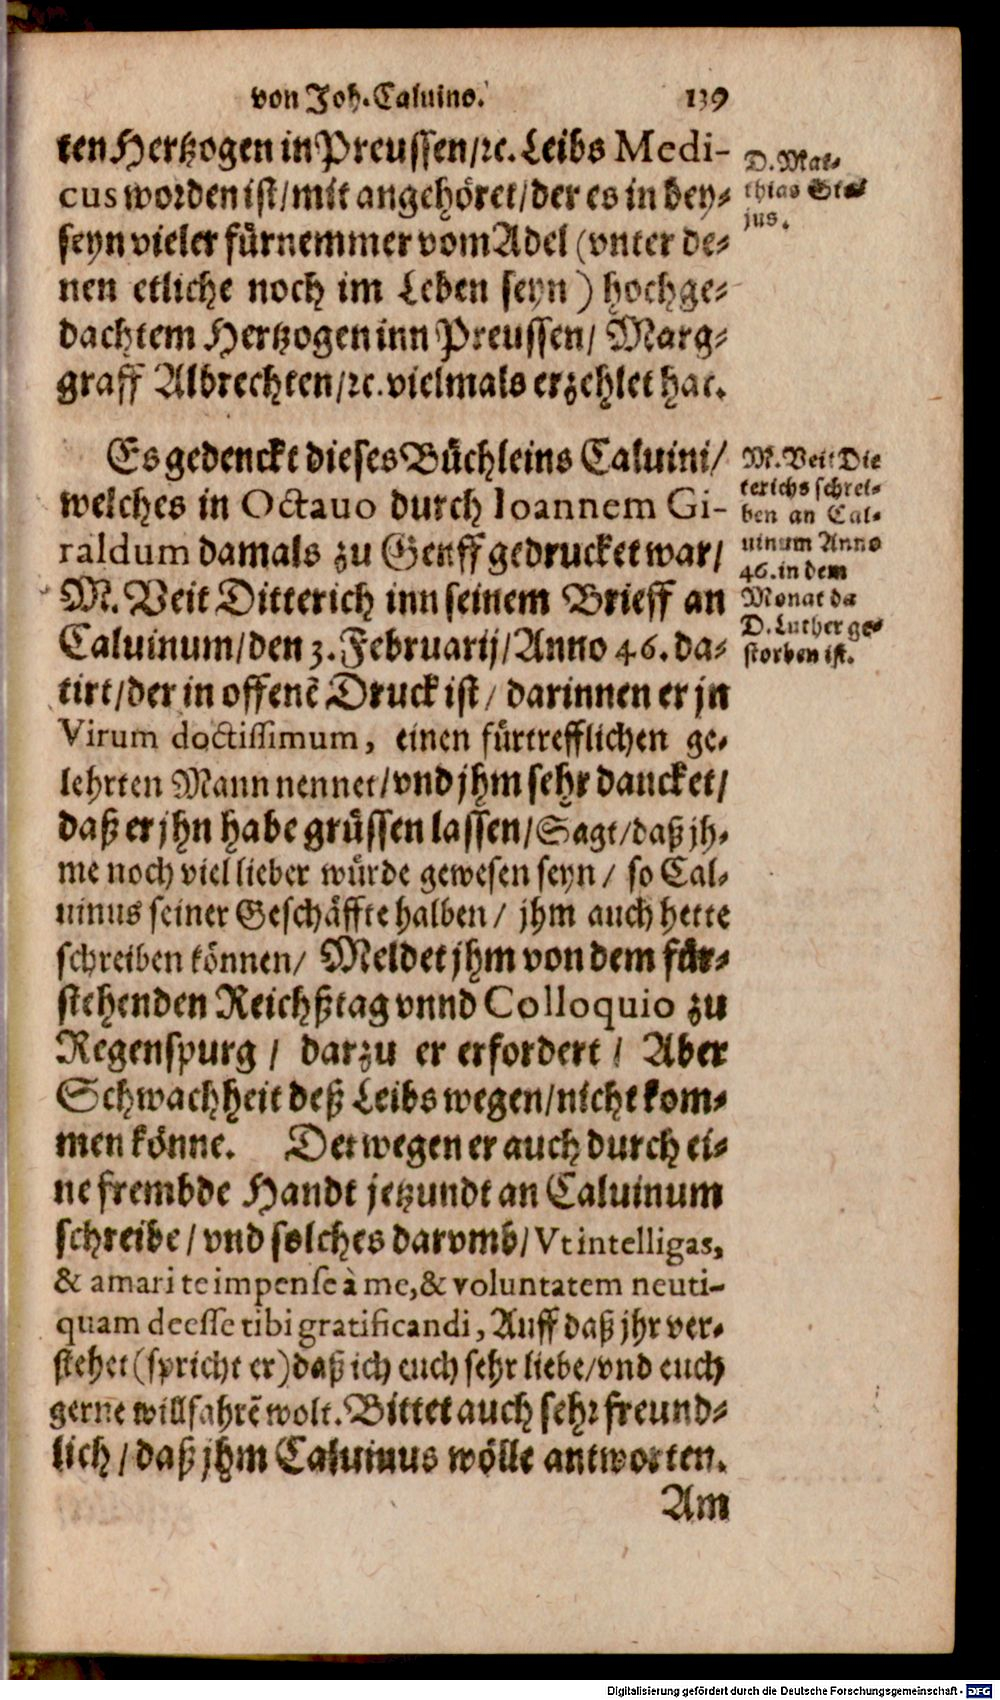 von Joh. Caluino. 139
ten Hertzogen in Preussen/ꝛc. Leibs Medi-
cus worden ist/mit angehöret/der es in bey-
seyn vieler fürnemmer vom Adel (vnter de-
nen etliche noch im Leben seyn) hochge-
dachtem Hertzogen inn Preussen/ Marg-
graff Albrechten/ꝛc. vielmals erzehlet hat.
D. Mat-
thias Sto-
jus.
Es gedenckt dieses Büchleins Caluini/
welches in Octauo durch Ioannem Gi-
raldum damals zu Genff gedrucket war/
M. Veit Ditterich inn seinem Brieff an
Caluinum/den 3. Februarij/Anno 46. da-
tirt/der in offenē Druck ist/ darinnen er jn
Virum doctissimum, einen fürtrefflichen ge-
lehrten Mann nennet/vnd jhm sehr dancket/
daß er jhn habe grüssen lassen/Sagt/daß jh-
me noch viel lieber würde gewesen seyn/ so Cal-
uinus seiner Geschäffte halben/ jhm auch hette
schreiben können/ Meldet jhm von dem für-
stehenden Reichßtag vnnd Colloquio zu
Regenspurg/ darzu er erfordert/ Aber
Schwachheit deß Leibs wegen/nicht kom-
men könne. Derwegen er auch durch ei-
ne frembde Handt jetzundt an Caluinum
schreibe/ vnd solches darvmb/ Vt intelligas,
& amari te impense à me, & voluntatem neuti-
quam deesse tibi gratificandi, Auff daß jhr ver-
stehet (spricht er) daß ich euch sehr liebe/vnd euch
gerne willfahrē wolt. Bittet auch sehr freund-
lich/ daß jhm Caluinus wölle antworten.
Am
M. Veit Die
terichs schrei-
ben an Cal-
uinum Anno
46. in dem
Monat da
D. Luther ge-
storben ist.
Digitalisierung gefördert durch die Deutsche Forschungsgemeinschaft - DFG